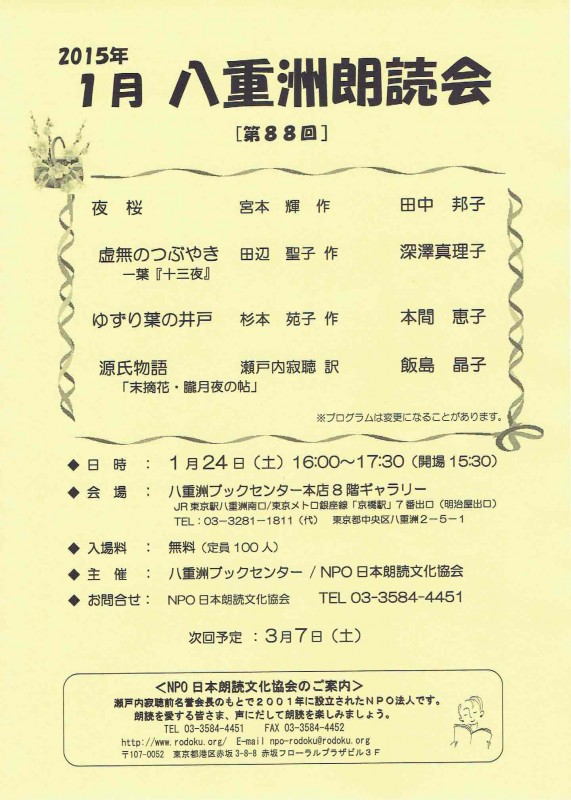 2015年
1月 八重洲朗読会
［第88回］
夜 桜 宮本 輝 作 田中 邦子
虚無のつぶやき 田辺 聖子 作 深澤真理子
一葉『十三夜』
ゆずり葉の井戸 杉本 苑子 作 本間 恵子
源氏物語 瀬戸内寂聴 訳 飯島 晶子
「末摘花・朧月夜の帖」
※プログラムは変更になることがあります。
◆ 日 時 ： 1月24日（土）16:00～17:30（開場 15:30）
◆ 会 場 ： 八重洲ブックセンター本店8階ギャラリー
JR東京駅八重洲南口/東京メトロ銀座線「京橋駅」7番出口（明治屋出口）
TEL：03-3281-1811（代） 東京都中央区八重洲2-5-1
◆ 入場料 ： 無料（定員100人）
◆ 主 催 ： 八重洲ブックセンター / NPO日本朗読文化協会
◆ お問合せ： NPO日本朗読文化協会 TEL 03-3584-4451
次回予定 ：3月7日（土）
＜NPO日本朗読文化協会のご案内＞
瀬戸内寂聴前名誉会長のもとで2001年に設立されたNPO法人です。
朗読を愛する皆さま、声にだして朗読を楽しみましょう。
TEL 03-3584-4451 FAX 03-3584-4452
http://www.rodoku.org/ E-mail npo-rodoku@rodoku.org
〒107-0052 東京都港区赤坂3-8-8 赤坂フローラルプラザビル3F